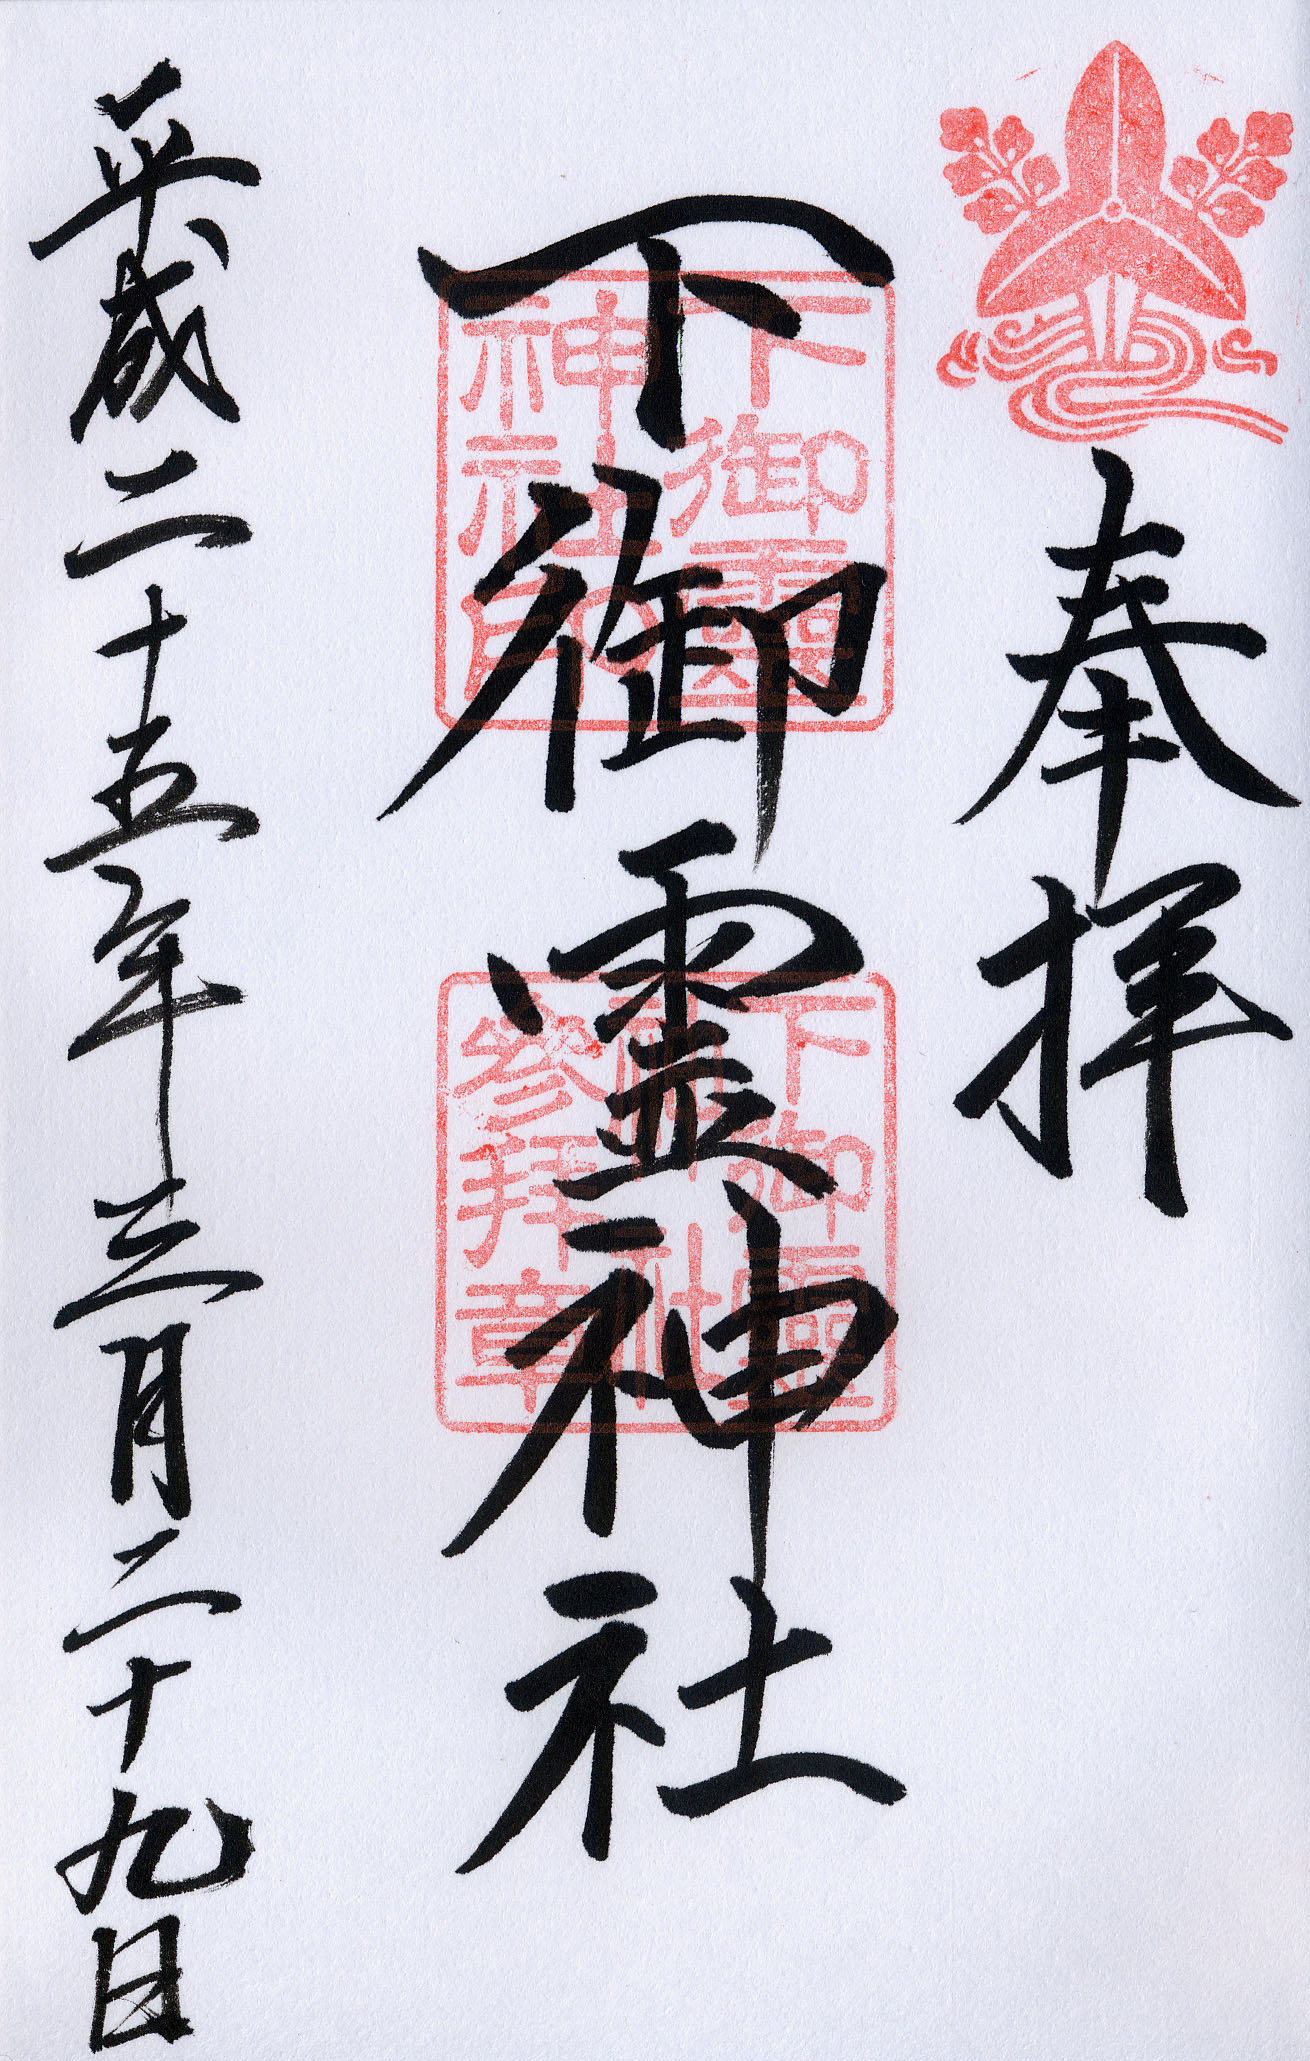 奉拝
下御霊神社
下御霊
神社印
下御靈
神社
參拜章
平成二十五年三月二十九日